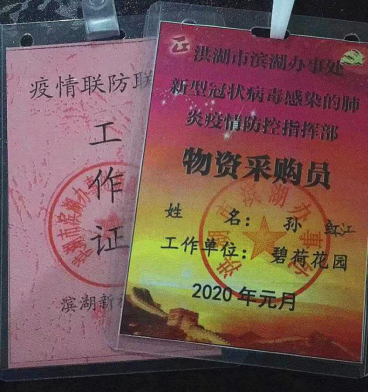 疫情联防联
工
作
证
滨湖新
洪湖市滨湖办事处
新型冠状病毒感染的肺
炎疫情防控指挥部
物资采购员
姓 名：孙 红江
工作单位：碧荷花园
2020年元月